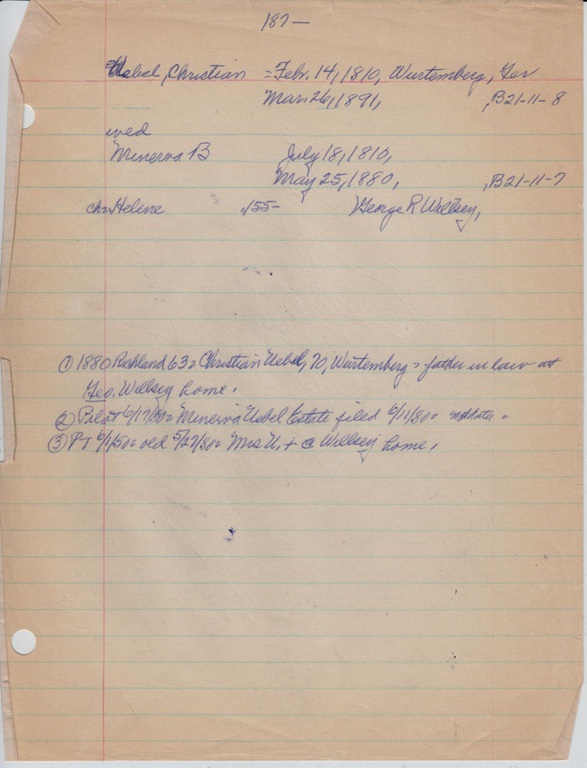 187-
Uebel, Christian = Feb. 14, 1810, Wurtemberg, Ger
Mar. 26, 1891, , B21-11-8
wed
Minerva B July 18, 1810,
May 25, 1880, , B21-11-7
ch. Helene /55- George R Wellsey,
① 1880 Richland 63 = Christian Uebel, 70, Wurtemberg = father in law at
Geo. Wellsey home.
② Pilot 6/17/80 = Minerva Uebel Estate filed 6/11/80 = no data.
③ PT 6/1/80 = 5/27/80 = Mrs U. + @ Wellsey home.